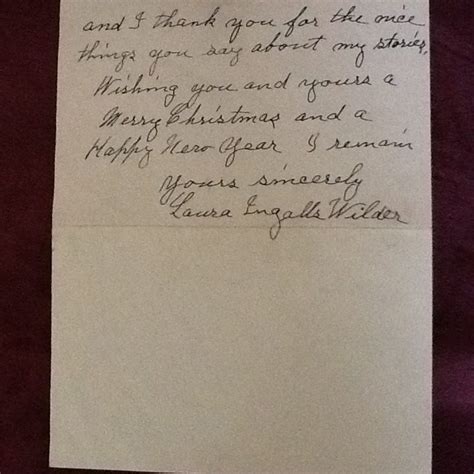 and I thank you for the nice
things you say about my stories.
Wishing you and yours a
Merry Christmas and a
Happy New Year I remain
yours sincerely
Laura Ingalls Wilder